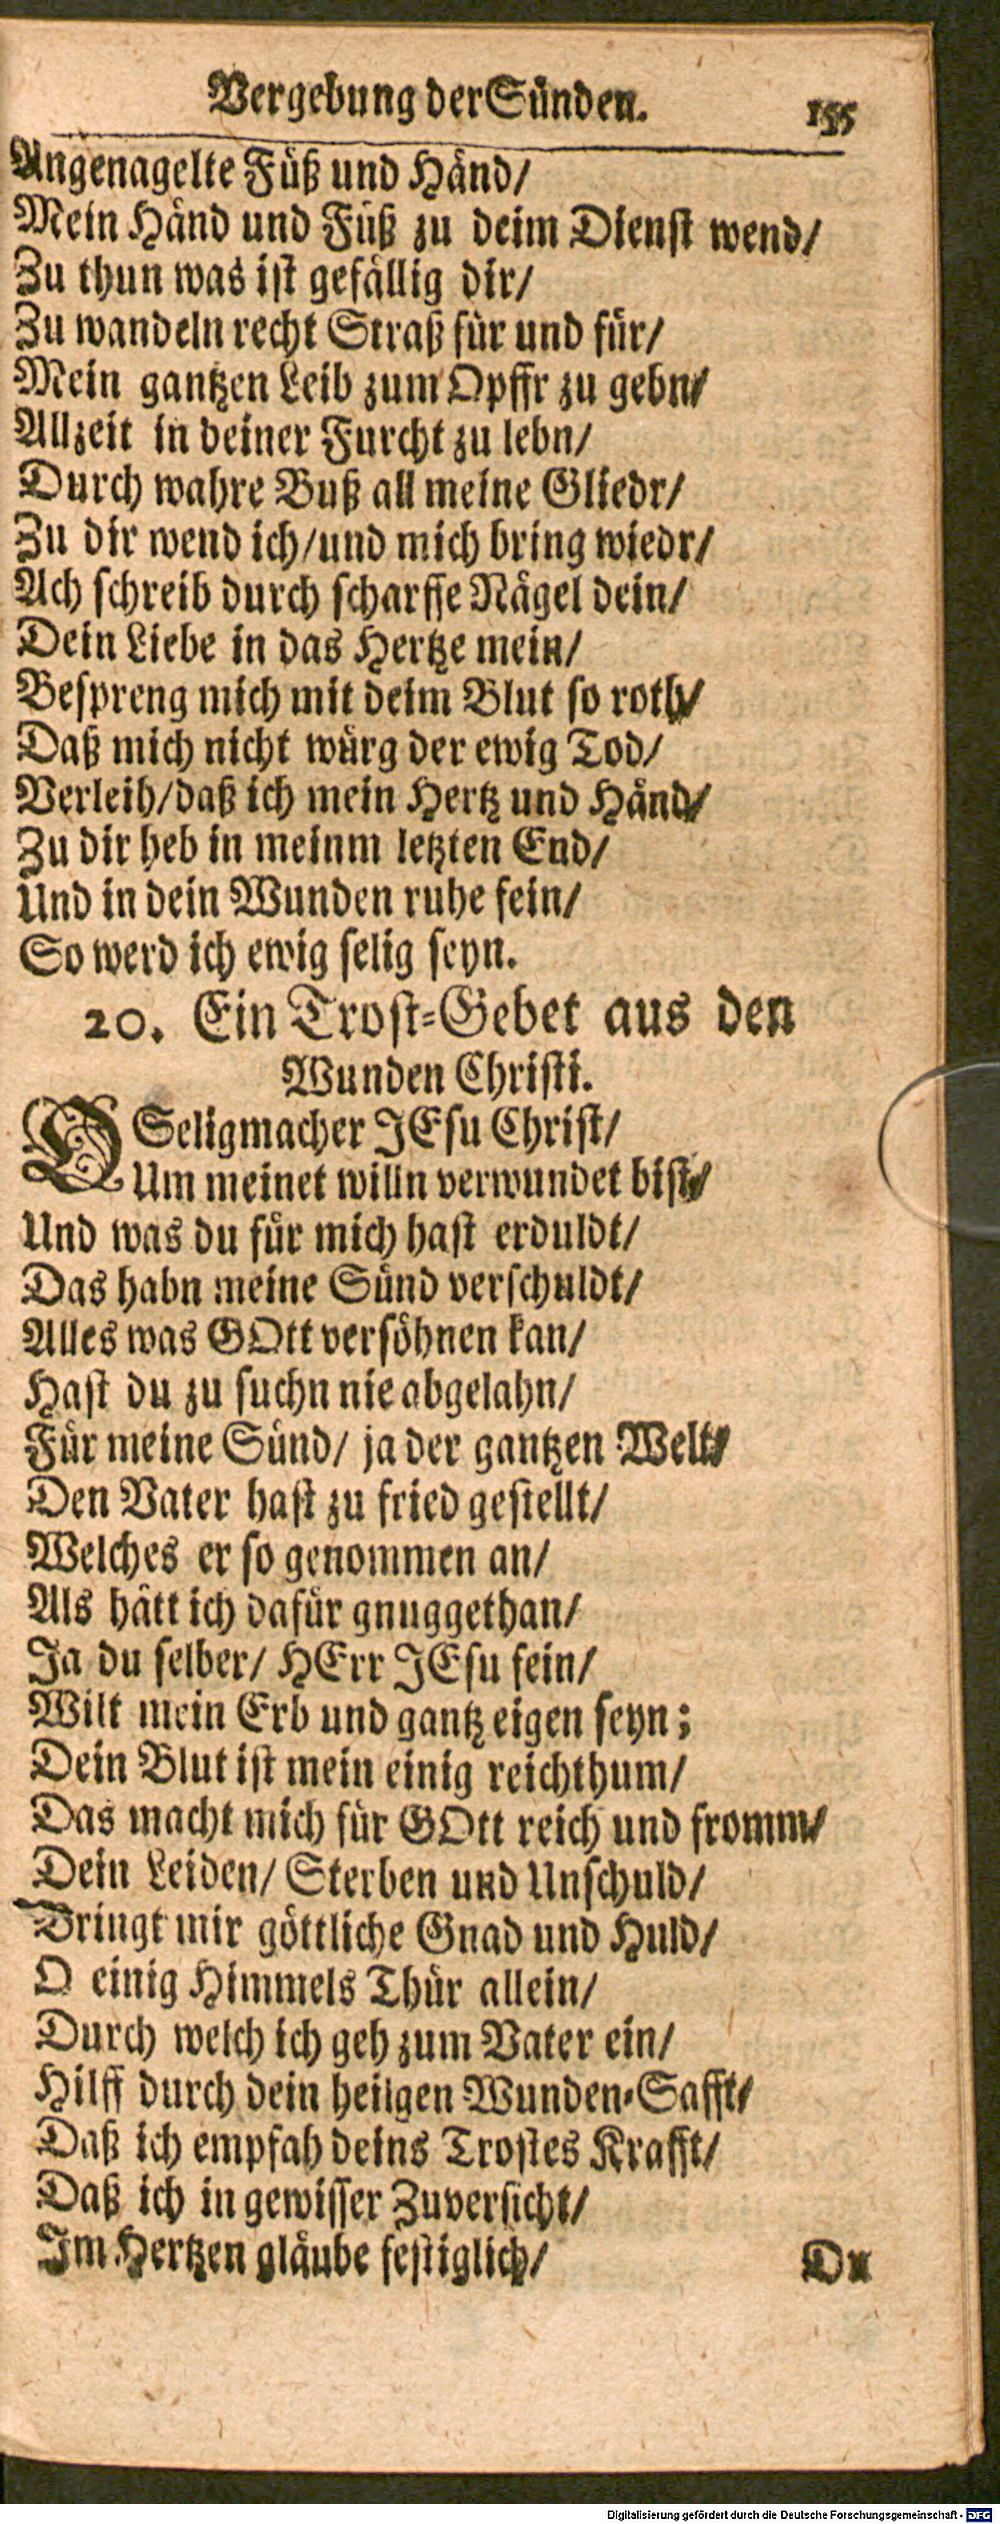 Vergebung der Sünden. 155
Angenagelte Füß und Händ/
Mein Händ und Füß zu deim Dienst wend/
Zu thun was ist gefällig dir/
Zu wandeln recht Straß für und für/
Mein gantzen Leib zum Opffr zu gebn/
Allzeit in deiner Furcht zu lebn/
Durch wahre Buß all meine Gliedr/
Zu dir wend ich/und mich bring wiedr/
Ach schreib durch scharffe Nägel dein/
Dein Liebe in das Hertze mein/
Bespreng mich mit deim Blut so roth/
Daß mich nicht würg der ewig Tod/
Verleih/daß ich mein Hertz und Händ/
Zu dir heb in meinm letzten End/
Und in dein Wunden ruhe fein/
So werd ich ewig selig seyn.
20. Ein Trost-Gebet aus den
Wunden Christi.
O Seligmacher JEsu Christ/
Um meinet willn verwundet bist/
Und was du für mich hast erduldt/
Das habn meine Sünd verschuldt/
Alles was GOtt versöhnen kan/
Hast du zu suchn nie abgelahn/
Für meine Sünd/ ja der gantzen Welt/
Den Vater hast zu fried gestellt/
Welches er so genommen an/
Als hätt ich dafür gnuggethan/
Ja du selber/ HErr JEsu fein/
Wilt mein Erb und gantz eigen seyn;
Dein Blut ist mein einig reichthum/
Das macht mich für GOtt reich und fromm/
Dein Leiden/ Sterben und Unschuld/
Bringt mir göttliche Gnad und Huld/
O einig Himmels Thür allein/
Durch welch ich geh zum Vater ein/
Hilff durch dein heilgen Wunden-Safft/
Daß ich empfah deins Trostes Krafft/
Daß ich in gewisser Zuversicht/
Im Hertzen gläube festiglich/
Du
Digitalisierung gefördert durch die Deutsche Forschungsgemeinschaft - DFG